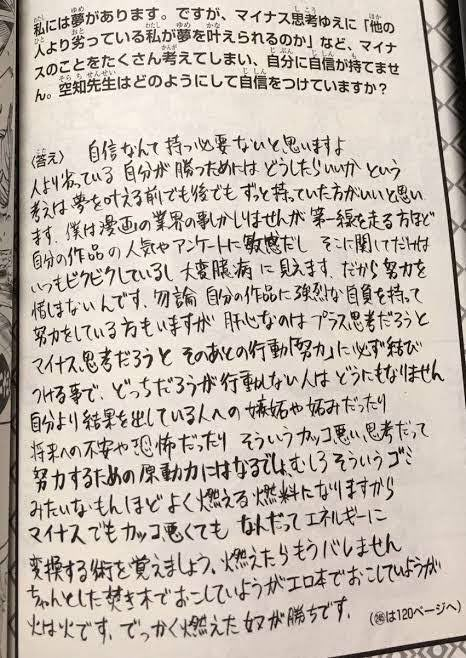 私には夢があります。ですが、マイナス思考ゆえに「他の
人より劣っている私が夢を叶えられるのか」など、マイナ
スのことをたくさん考えてしまい、自分に自信が持てませ
ん。空知先生はどのようにして自信をつけていますか？
〈答え〉 自信なんて持つ必要ないと思いますよ
人より劣っている 自分が勝つためには どうしたらいいか という
考えは 夢を叶える前でも後でも ずっと持っていた方がいいと思い
ます。僕は漫画の業界の事しかしりませんが 第一線を走る方ほど
自分の作品の人気やアンケートに敏感だし そこに関してだけは
いつもビクビクしているし 大変臆病に見えます。だから努力を
惜しまないんです。勿論 自分の作品に強烈な自負を持って
努力をしている方もいますが 肝心なのはプラス思考だろうと
マイナス思考だろうと そのあとの行動「努力」に必ず結び
つける事で、どっちだろうが行動しない人は どうにもなりません
自分より結果を出している人への 嫉妬や妬みだったり
将来への不安や恐怖だったり そういうカッコ悪い思考だって
努力するための原動力にはなるでしょ むしろ そういう ゴミ
みたいなもんほど よく燃える燃料になりますから
マイナスでもカッコ悪くても なんだって エネルギーに
変換する術を覚えましょう、燃えたらもうバレません
ちゃんとした焚き木でおこしていようがエロ本でおこしていようが
火は火です。でっかく燃えた奴が勝ちです。
(は120ページへ)